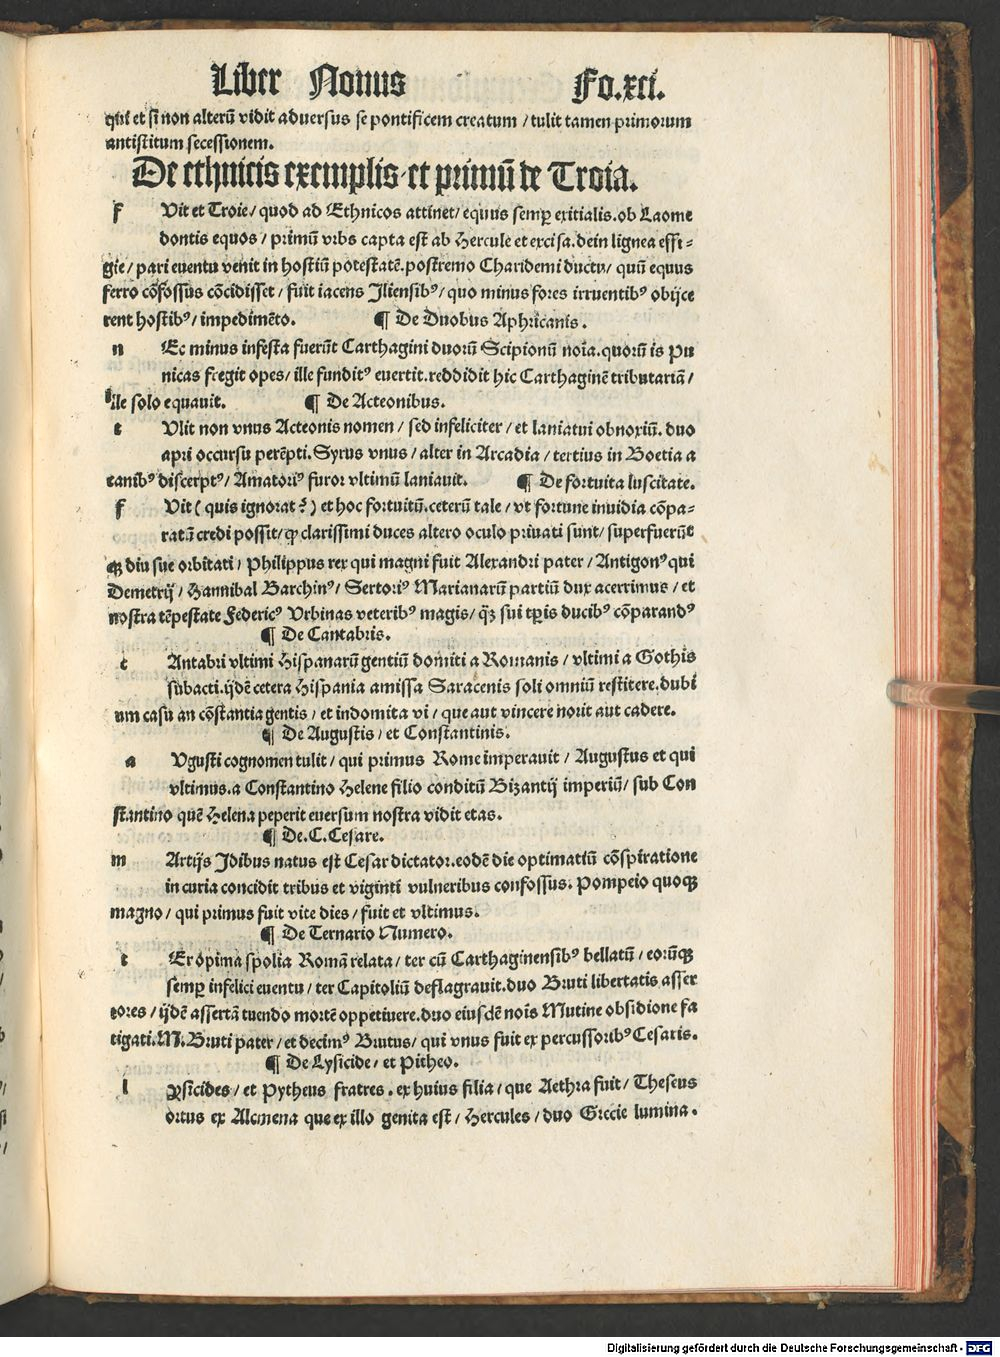 Liber Nonus Fo.xci.
qui et si non alterū vidit adversus se pontificem creatum / tulit tamen primorum
antistitum secessionem.
De ethnicis exemplis et primū de Troia.
f Vit et Troie / quod ad Ethnicos attinet / equus semꝑ exitialis. ob Laome
dontis equos / primū vrbs capta est ab Hercule et excisa. dein lignea effi⸗
gie / pari euentu venit in hostiū potestatē. postremo Charidemi ductu / quū equus
ferro cōfossus cōcidisset / fuit iacens Iliensibꝰ / quo minus fores irruentibꝰ obijce
rent hostibꝰ / impedimēto. ¶ De Duobus Aphricanis.
n Ec minus infesta fuerūt Carthagini duorū Scipionū noīa. quorū is Pu
nicas fregit opes / ille funditꝰ euertit. reddidit hic Carthaginē tributariā /
ille solo equauit. ¶ De Acteonibus.
t Vlit non vnus Acteonis nomen / sed infeliciter / et laniatui obnoxiū. duo
apri occursu perēpti. Syrus vnus / alter in Arcadia / tertius in Boetia a
canibꝰ discerptꝰ / Amatoriꝰ furor vltimū laniauit. ¶ De fortuita luscitate.
f Vit ( quis ignorat ? ) et hoc fortuitū. ceterū tale / vt fortune inuidia cōpa⸗
ratū credi possit / ꝙ clarissimi duces altero oculo priuati sunt / superfuerūt
qꝫ diu sue orbitati / Philippus rex qui magni fuit Alexandri pater / Antigonꝰ qui
Demetrij / Hannibal Barchinꝰ / Sertoriꝰ Marianarū partiū dux acerrimus / et
nostra tēpestate Federicꝰ Vrbinas veteribꝰ magis / q̄ꝫ sui tꝑis ducibꝰ cōparandꝰ
¶ De Cantabris.
c Antabri vltimi Hispanarū gentiū domiti a Romanis / vltimi a Gothis
subacti. ijdē cetera Hispania amissa Saracenis soli omniū restitere. dubi
um casu an cōstantia gentis / et indomita vi / que aut vincere norit aut cadere.
¶ De Augustis / et Constantinis.
a Vgusti cognomen tulit / qui primus Rome imperauit / Augustus et qui
vltimus. a Constantino Helene filio conditū Bizantij imperiū / sub Con
stantino quē Helena peperit euersum nostra vidit etas.
¶ De. C. Cesare.
m Artijs Idibus natus est Cesar dictator. eodē die optimatiū cōspiratione
in curia concidit tribus et viginti vulneribus confossus. Pompeio quoqꝫ
magno / qui primus fuit vite dies / fuit et vltimus.
¶ De Ternario Numero.
t Er opima spolia Romā relata / ter cū Carthaginensibꝰ bellatū / eorūqꝫ
semꝑ infelici euentu / ter Capitoliū deflagrauit. duo Bruti libertatis asser
tores / ijdē assertā tuendo mortē oppetiuere. duo eiusdē noīs Mutine obsidione fa
tigati. M. Bruti pater / et decimꝰ Brutus / qui vnus fuit ex percussoribꝰ Cesaris.
¶ De Lysicide / et Pitheo.
l ysicides / et Pytheus fratres. ex huius filia / que Aethra fuit / Theseus
ortus ex Alcmena que ex illo genita est / Hercules / duo Grecie lumina.
Digitalisierung gefördert durch die Deutsche Forschungsgemeinschaft - DFG